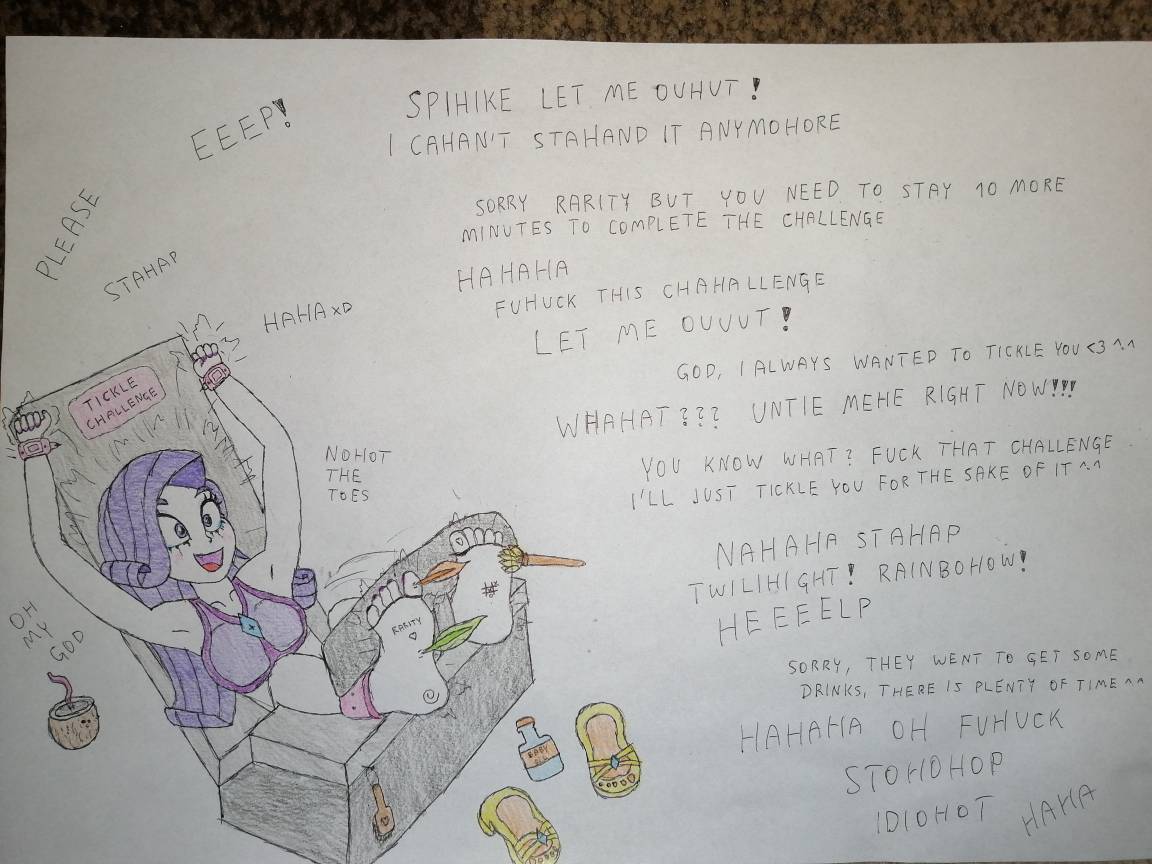 EEEP!
PLEASE
STAHAP
HAHA xD
TICKLE
CHALLENGE
NOHOT
THE
TOES
OH
MY
GOD
RARITY
#
BABY
OIL
SPIHIKE LET ME OUHUT!
I CAHAN'T STAHAND IT ANYMOHORE
SORRY RARITY BUT YOU NEED TO STAY 10 MORE
MINUTES TO COMPLETE THE CHALLENGE
HAHAHA
FUHUCK THIS CHAHALLENGE
LET ME OUUUT!
GOD, I ALWAYS WANTED TO TICKLE YOU <3 ^^
WHAHAT??? UNTIE MEHE RIGHT NOW!!!
YOU KNOW WHAT? FUCK THAT CHALLENGE
I'LL JUST TICKLE YOU FOR THE SAKE OF IT ^^
NAHAHA STAHAP
TWILIHIGHT! RAINBOHOW!
HEEEELP
SORRY, THEY WENT TO GET SOME
DRINKS, THERE IS PLENTY OF TIME ^^
HAHAHA OH FUHUCK
STOHOHOP
IDIOHOT
HAHA